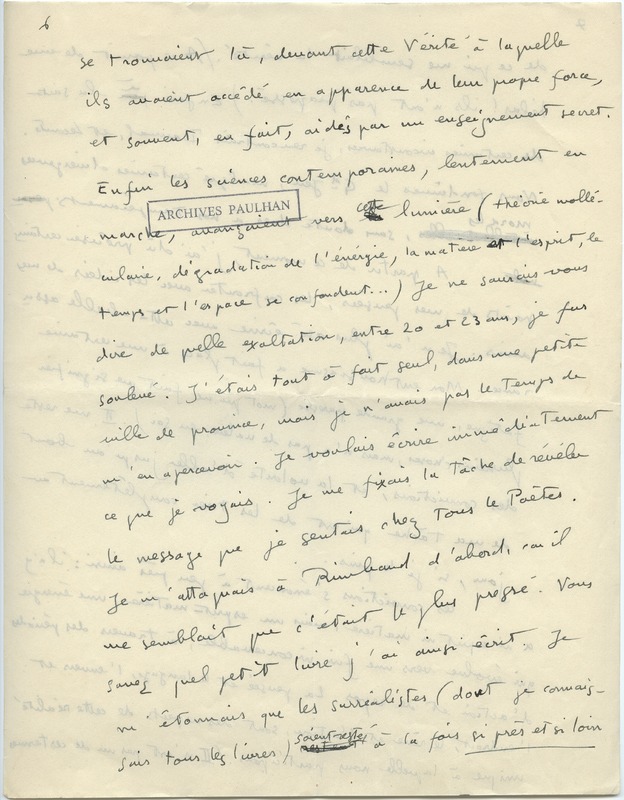 6
se trouvaient là, devant cette Vérité à laquelle
ils avaient accédé en apparence de leur propre force,
et souvent, en fait, aidés par un enseignement secret.
Enfin les sciences contemporaines, lentement en
ARCHIVES PAULHAN
marche, avançaient vers cette lumière (théorie mollé-
culaire, dégradation de l'énergie, la matière et l'esprit, le
temps et l'espace se confondent...) Je ne saurais vous
dire de quelle exaltation, entre 20 et 23 ans, je fus
soulevé. J'étais tout à fait seul, dans une petite
ville de province, mais je n'avais pas le temps de
m'en apercevoir. Je voulais écrire immédiatement
ce que je voyais. Je me fixais la tâche de révéler
le message que je sentais chez tous le Poètes.
Je m'attaquais à Rimbaud d'abord, car il
me semblait que c'était le plus pressé. Vous
savez quel petit livre j'ai ainsi écrit. Je
m'étonnais que les surréalistes (dont je connais-
sais tous les livres) soient restés à la fois si près et si loin